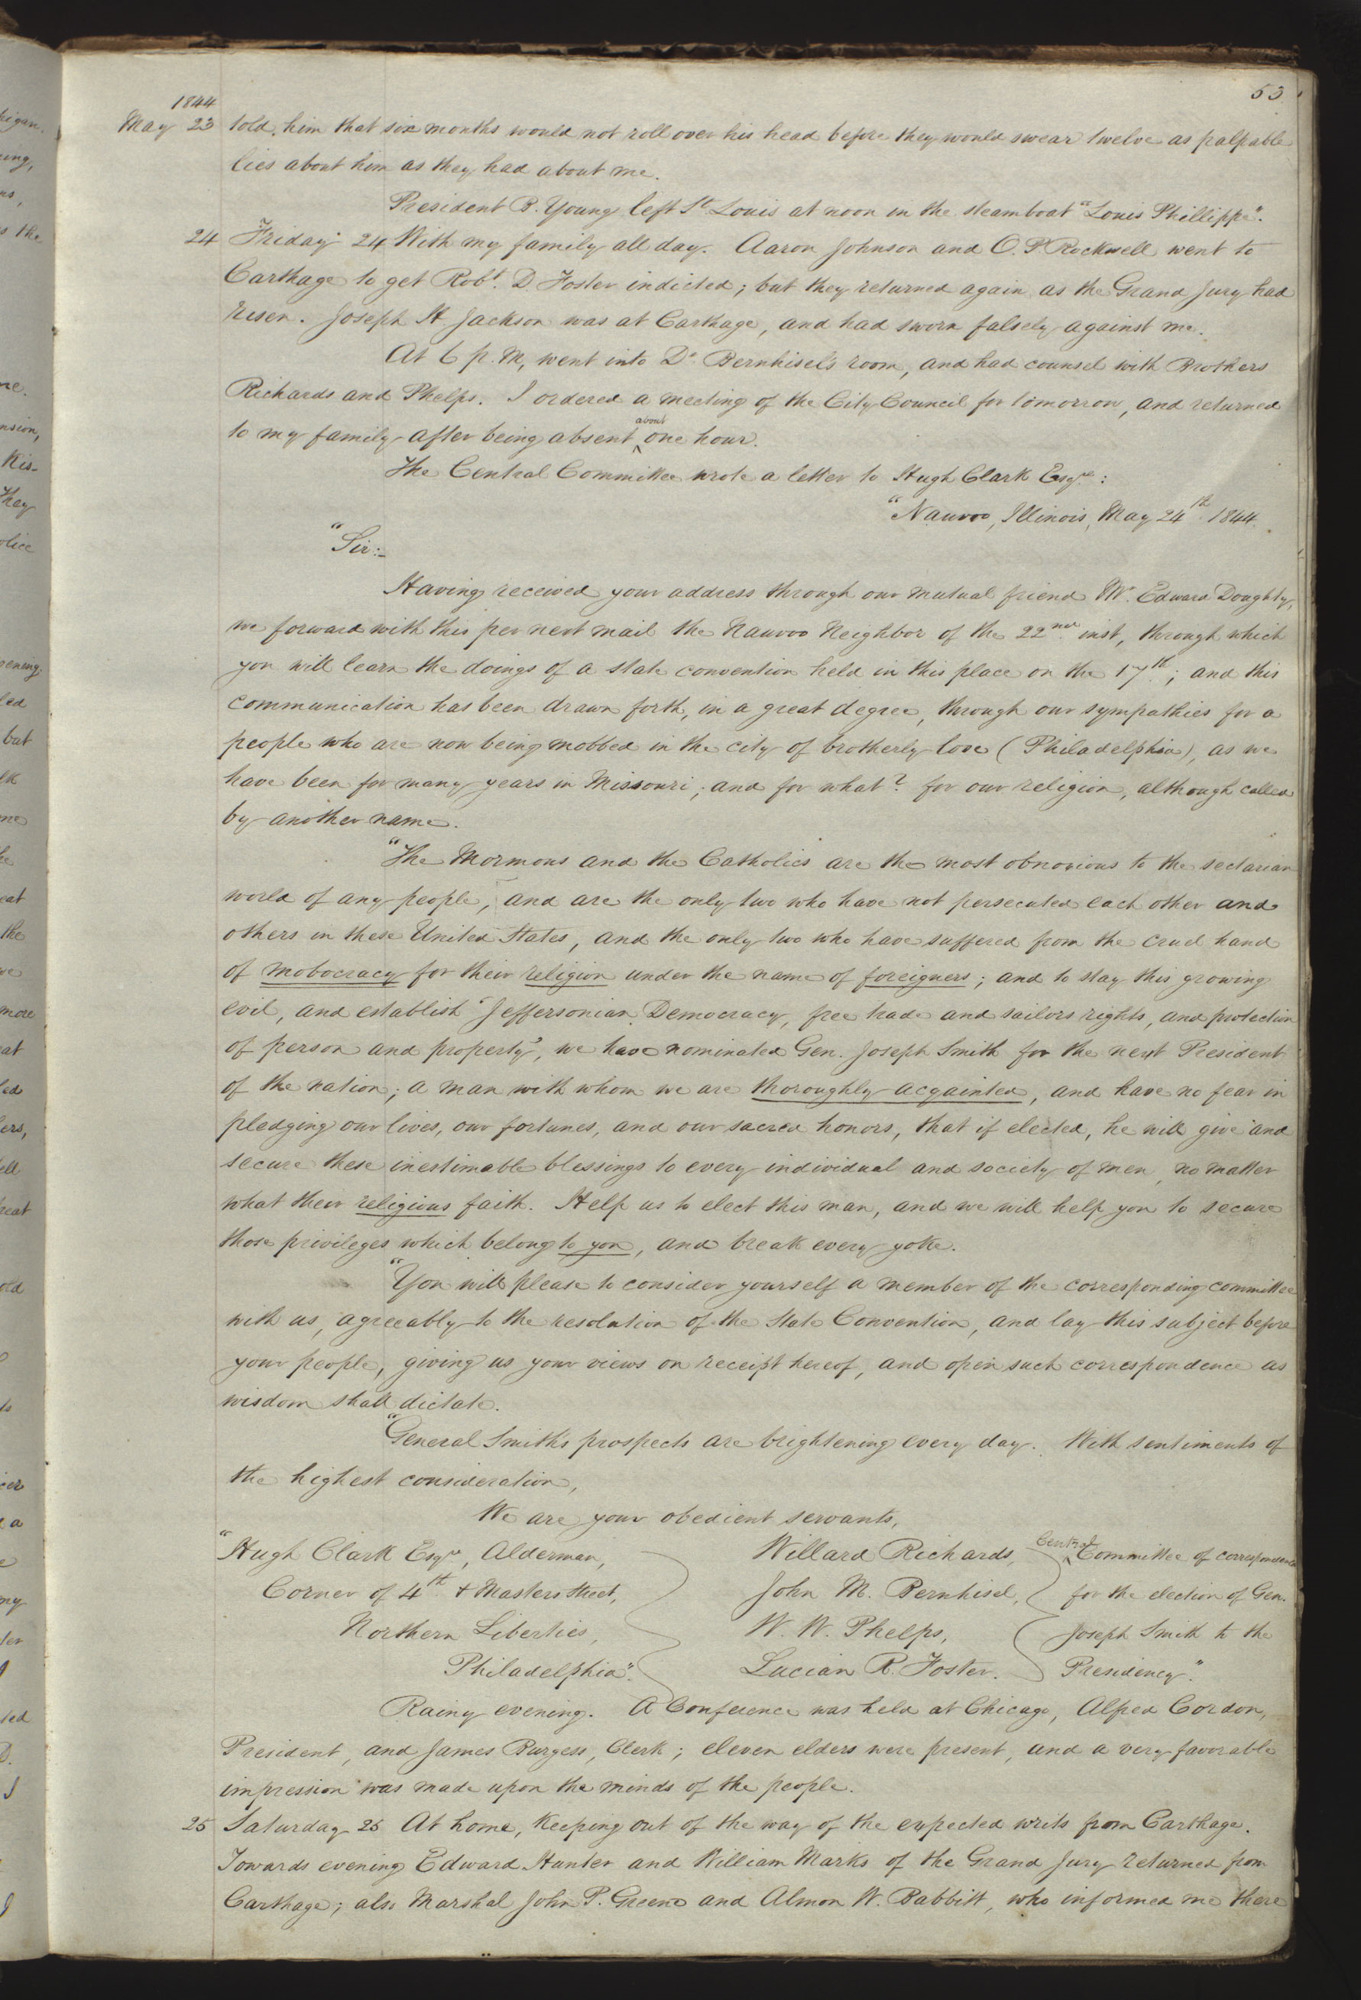 53
1844
May 23 told him that six months would not roll over his head before they would swear twelve as palpable
lies about him as they had about me.
President B. Young left St Louis at noon in the steamboat "Louis Phillippe".
24 Friday 24 With my family all day. Aaron Johnson and O. P. Rockwell went to
Carthage to get Robt. D Foster indicted; but they returned again, as the Grand Jury had
risen. Joseph H. Jackson was at Carthage, and had sworn falsely against me.
At 6 p. M, went into Dr Bernhisel's room, and had counsel with Brothers
Richards and Phelps. I ordered a meeting of the City Council for tomorrow, and returned
to my family after being absent about one hour.
The Central Committee wrote a letter to Hugh Clark Esqre:
"Nauvoo, Illinois, May 24th 1844.
"Sir:–
Having received your address through our mutual friend Mr. Edward Doughty,
we forward with this per next mail the Nauvoo Neighbor of the 22nd inst, through which
you will learn the doings of a state convention held in this place on the 17th; and this
communication has been drawn forth, in a great degree, through our sympathies for a
people who are now being mobbed in the city of brotherly love (Philadelphia), as we
have been for many years in Missouri; and for what? for our religion, although called
by another name.
"The Mormons and the Catholics are the most obnoxious to the sectarian
world of any people, and are the only two who have not persecuted each other and
others in these United States, and the only two who have suffered from the cruel hand
of mobocracy for their religion under the name of foreigners; and to stay this growing
evil, and establish "Jeffersonian Democracy, free trade and sailors rights, and protection
of person and property", we have nominated Gen. Joseph Smith for the next President
of the nation; a man with whom we are thoroughly acqainted, and have no fear in
pledging our lives, our fortunes, and our sacred honors, that if elected, he will give and
secure these inestimable blessings to every individual and society of men, no matter
what their religious faith. Help us to elect this man, and we will help you to secure
those privileges which belong to you, and break every yoke.
"You will please to consider yourself a member of the corresponding committee
with us, agreeably to the resolution of the State Convention, and lay this subject before
your people, giving us your views on receipt hereof, and open such correspondence as
wisdom shall dictate.
"General Smith's prospects are brightening every day. With sentiments of
the highest consideration,
We are your obedient servants,
"Hugh Clark Esqre, Alderman, Willard Richards, Central Committee of correspondence
Corner of 4th & Masters Street, John M. Bernhisel, for the election of Gen.
Northern Liberties, W. W. Phelps, Joseph Smith to the
Philadelphia". Lucian R. Foster. Presidency".
Rainy evening. A Conference was held at Chicago, Alfred Cordon,
President, and James Burgess, Clerk; eleven elders were present, and a very favorable
impression was made upon the minds of the people.
25 Saturday 25 At home, keeping out of the way of the expected writs from Carthage.
Towards evening Edward Hunter and William Marks of the Grand Jury returned from
Carthage; also Marshal John P. Greene and Almon W. Babbitt, who informed me there